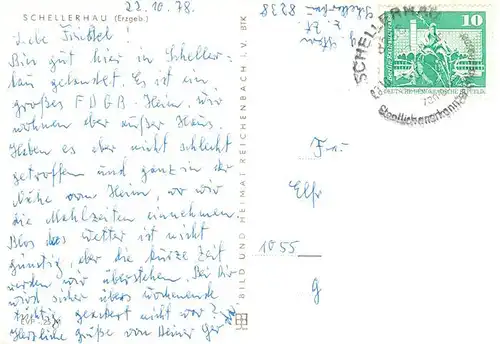 22.10.78.
SCHELLERHAU (Erzgeb.)
Liebe
Bin gut hier in Scheller-
hau gelandet. Es ist ein
großes FDGB-Heim, wir
wohnen aber außer Haus.
Haben es aber nicht schlecht
getroffen und ganz in der
Nähe vom Heim, wo wir
die Mahlzeiten einnehmen.
Blos das Wetter ist nicht
günstig, aber die kurze Zeit
werden wir überstehen. Bei Dir
wird sicher übers Wochenende
tüchtig geackert nicht war?
Herzliche Grüße von Deiner
BILD UND HEIMAT REICHENBACH I. V. BTK
8238
z. Zt.
SCHELLERHAU
10
Frau
1055